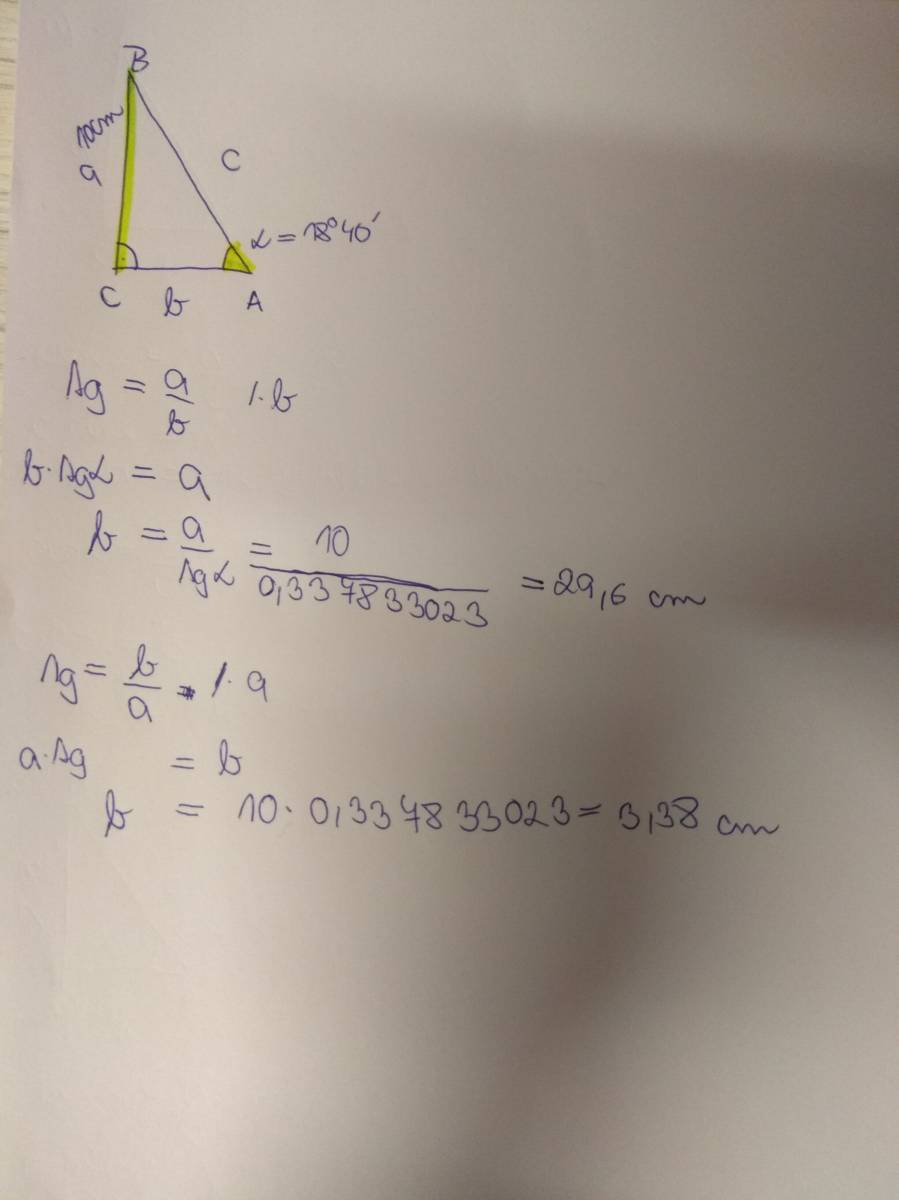 B
10cm
a
C
α = 18°40'
C b A
tg = a/b /·b
b·tgα = a
b = a/tgα = 10/0,337833023 = 29,6 cm
tg = b/a /·a
a·tg = b
b = 10·0,337833023 = 3,38 cm